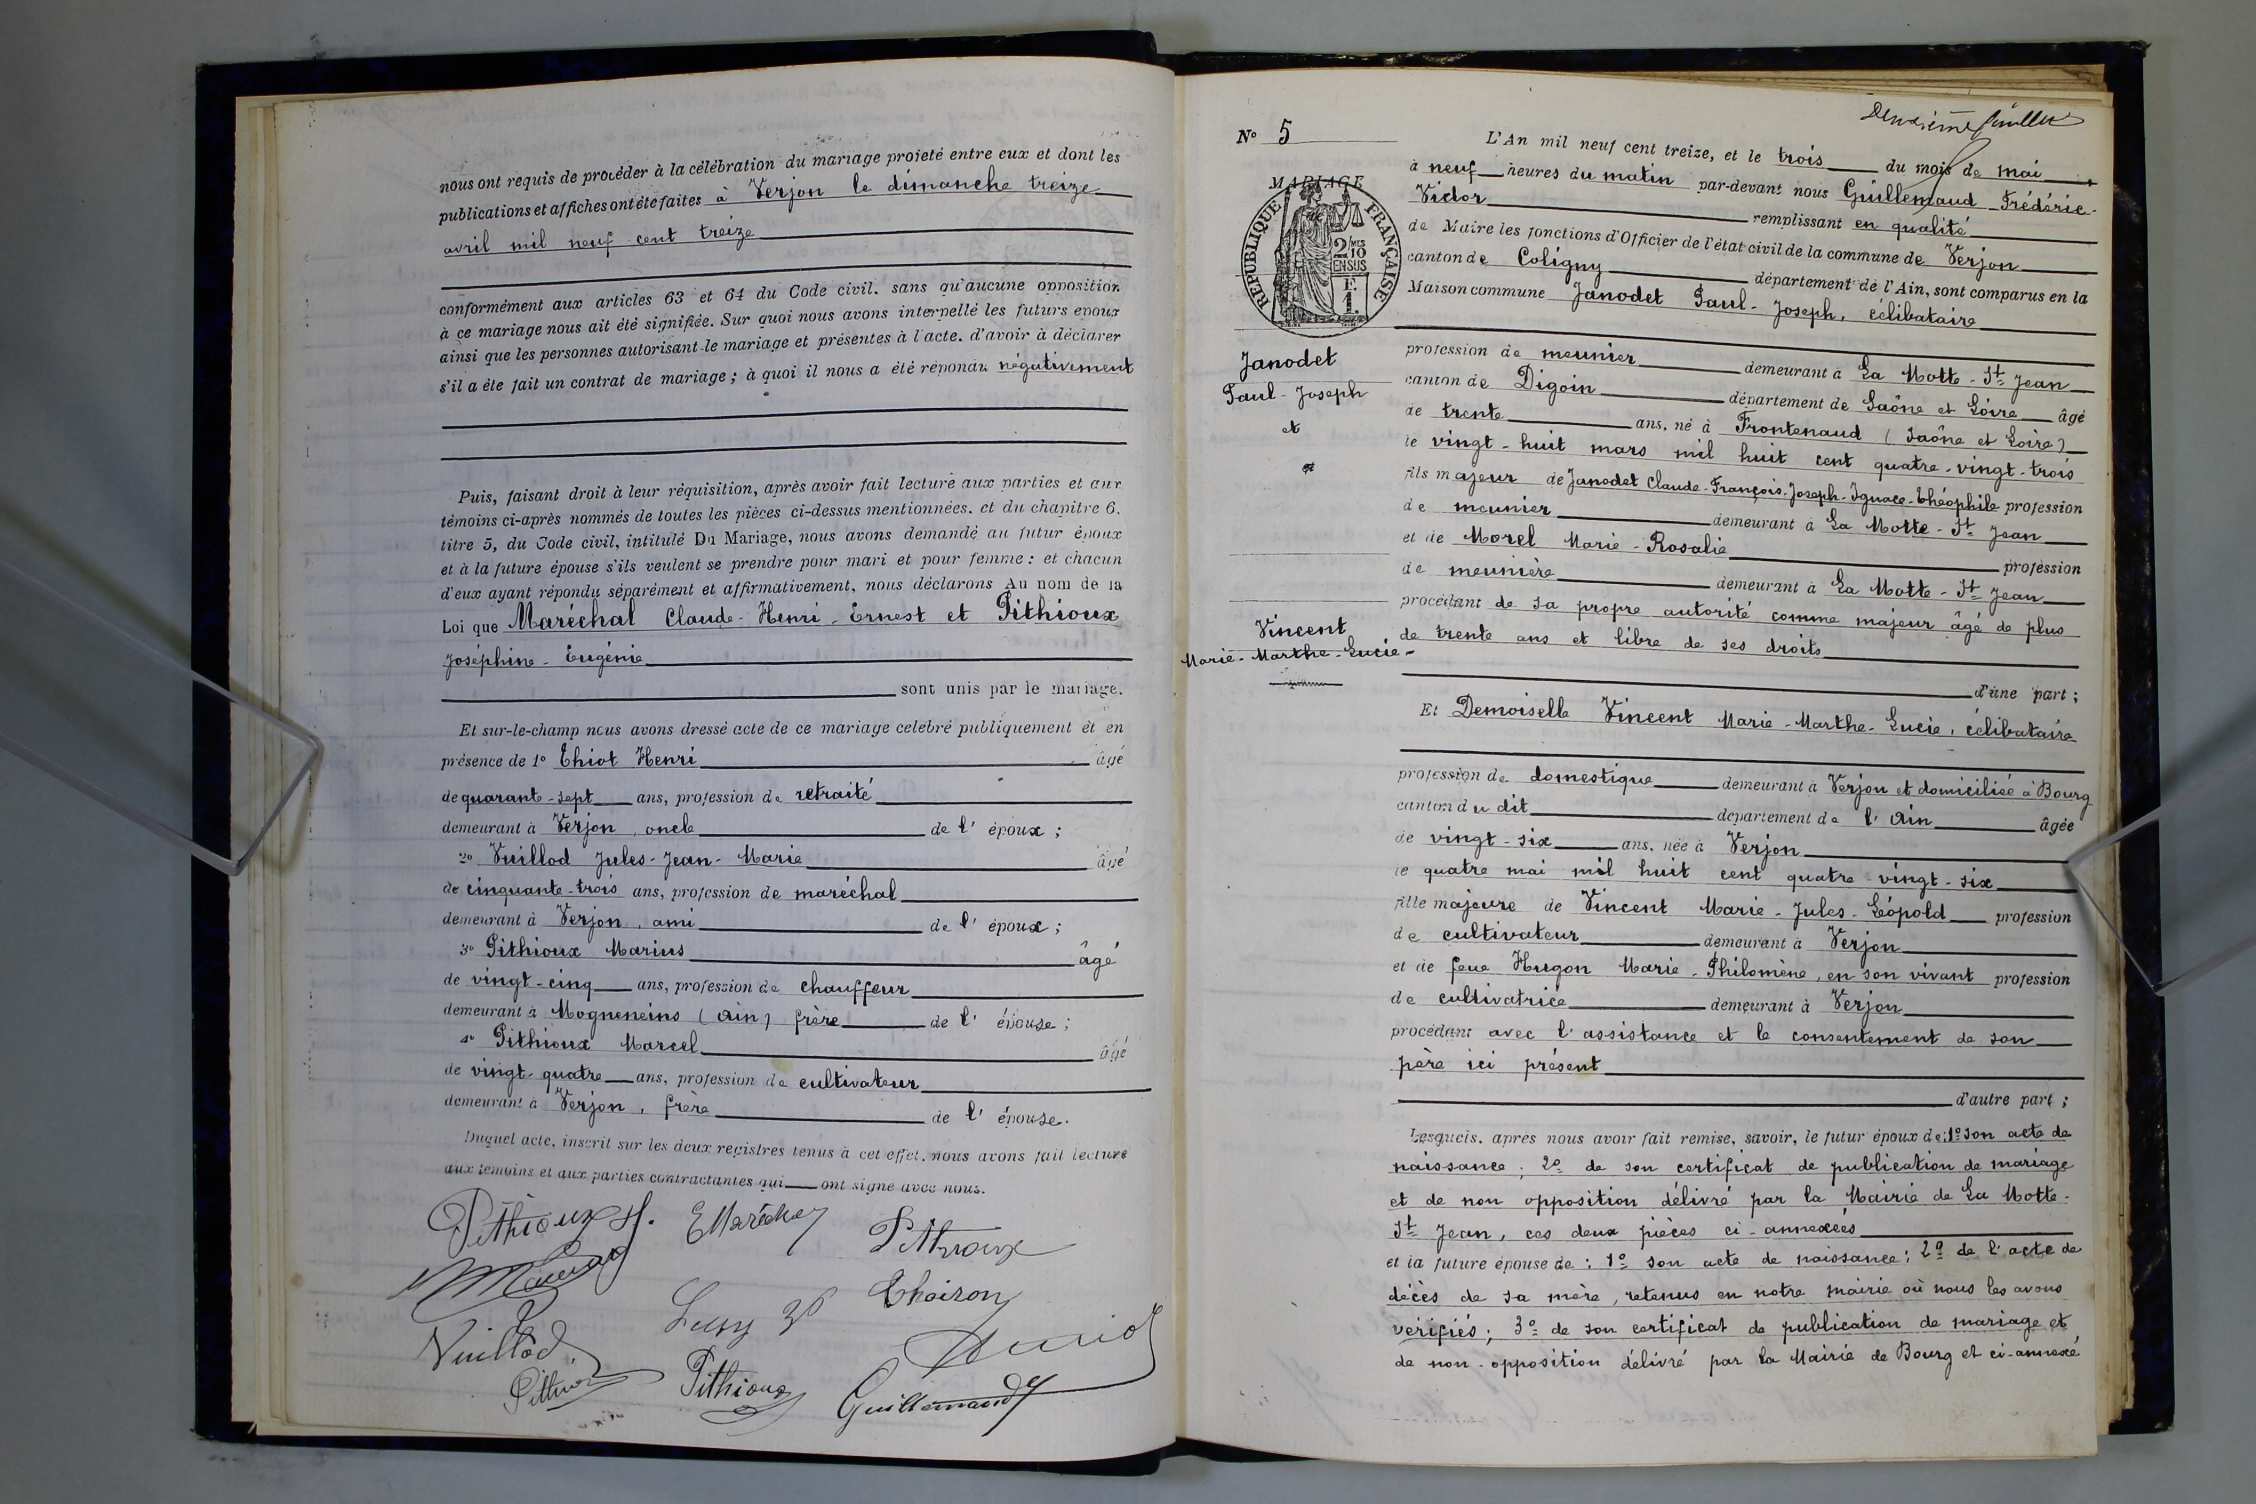 nous ont requis de procéder à la célébration du mariage projeté entre eux et dont les
publications et affiches ont été faites à Verjon le dimanche treize
avril mil neuf cent treize
conformément aux articles 63 et 64 du Code civil, sans qu'aucune opposition
à ce mariage nous ait été signifiée. Sur quoi nous avons interpellé les futurs époux
ainsi que les personnes autorisant le mariage et présentes à l'acte, d'avoir à déclarer
s'il a été fait un contrat de mariage; à quoi il nous a été répondu négativement
Puis, faisant droit à leur réquisition, après avoir fait lecture aux parties et aux
témoins ci-après nommés de toutes les pièces ci-dessus mentionnées, et du chapitre 6,
titre 5, du Code civil, intitulé Du Mariage, nous avons demandé au futur époux
et à la future épouse s'ils veulent se prendre pour mari et pour femme: et chacun
d'eux ayant répondu séparément et affirmativement, nous déclarons Au nom de la
Loi que Maréchal Claude-Henri-Ernest et Pithioux
Joséphine-Eugénie
sont unis par le mariage.
Et sur-le-champ nous avons dressé acte de ce mariage célébré publiquement et en
présence de 1° Thiot Henri âgé
de quarante-sept ans, profession de retraité
demeurant à Verjon, oncle de l'époux;
2° Vuillod Jules-Jean-Marie âgé
de cinquante-trois ans, profession de maréchal
demeurant à Verjon, ami de l'époux;
3° Pithioux Marius âgé
de vingt-cinq ans, profession de chauffeur
demeurant à Mogneneins (Ain) frère de l'épouse;
4° Pithioux Marcel âgé
de vingt-quatre ans, profession de cultivateur
demeurant à Verjon, frère de l'épouse.
Duquel acte, inscrit sur les deux registres tenus à cet effet, nous avons fait lecture
aux témoins et aux parties contractantes qui ont signé avec nous.
Pithioux J. E Maréchal Pithioux
Vuillod
Pithioux Guillemaud
Deuxième feuillet
N° 5
MARIAGE
RÉPUBLIQUE FRANÇAISE
2/10
EN SUS
F
1.
Janodet
Paul-Joseph
et
Vincent
Marie-Marthe-Lucie
L'An mil neuf cent treize, et le trois du mois de mai
à neuf heures du matin par-devant nous Guillemaud Frédéric-
Victor remplissant en qualité
de Maire les fonctions d'Officier de l'état civil de la commune de Verjon
canton de Coligny département de l'Ain, sont comparus en la
Maison commune Janodet Paul-Joseph, célibataire
profession de meunier demeurant à La Motte-St Jean
canton de Digoin département de Saône et Loire âgé
de trente ans, né à Frontenaud (Saône et Loire)
le vingt-huit mars mil huit cent quatre-vingt-trois
fils majeur de Janodet Claude-François-Joseph-Ignace-Théophile profession
de meunier demeurant à La Motte-St Jean
et de Morel Marie-Rosalie profession
de meunière demeurant à La Motte-St Jean
procédant de sa propre autorité comme majeur âgé de plus
de trente ans et libre de ses droits
d'une part;
Et Demoiselle Vincent Marie-Marthe-Lucie, célibataire
profession de domestique demeurant à Verjon et domiciliée à Bourg
canton du dit département de l'Ain âgée
de vingt-six ans, née à Verjon
le quatre mai mil huit cent quatre-vingt-six
fille majeure de Vincent Marie-Jules-Léopold profession
de cultivateur demeurant à Verjon
et de feue Hugon Marie-Philomène, en son vivant profession
de cultivatrice demeurant à Verjon
procédant avec l'assistance et le consentement de son
père ici présent
d'autre part;
Lesquels, après nous avoir fait remise, savoir, le futur époux de: 1° son acte de
naissance; 2° de son certificat de publication de mariage
et de non opposition délivré par la Mairie de La Motte-
St Jean, ces deux pièces ci-annexées
et la future épouse de: 1° son acte de naissance; 2° de l'acte de
décès de sa mère, retenus en notre mairie où nous les avons
vérifiés; 3° de son certificat de publication de mariage et
de non-opposition délivré par la Mairie de Bourg et ci-annexé